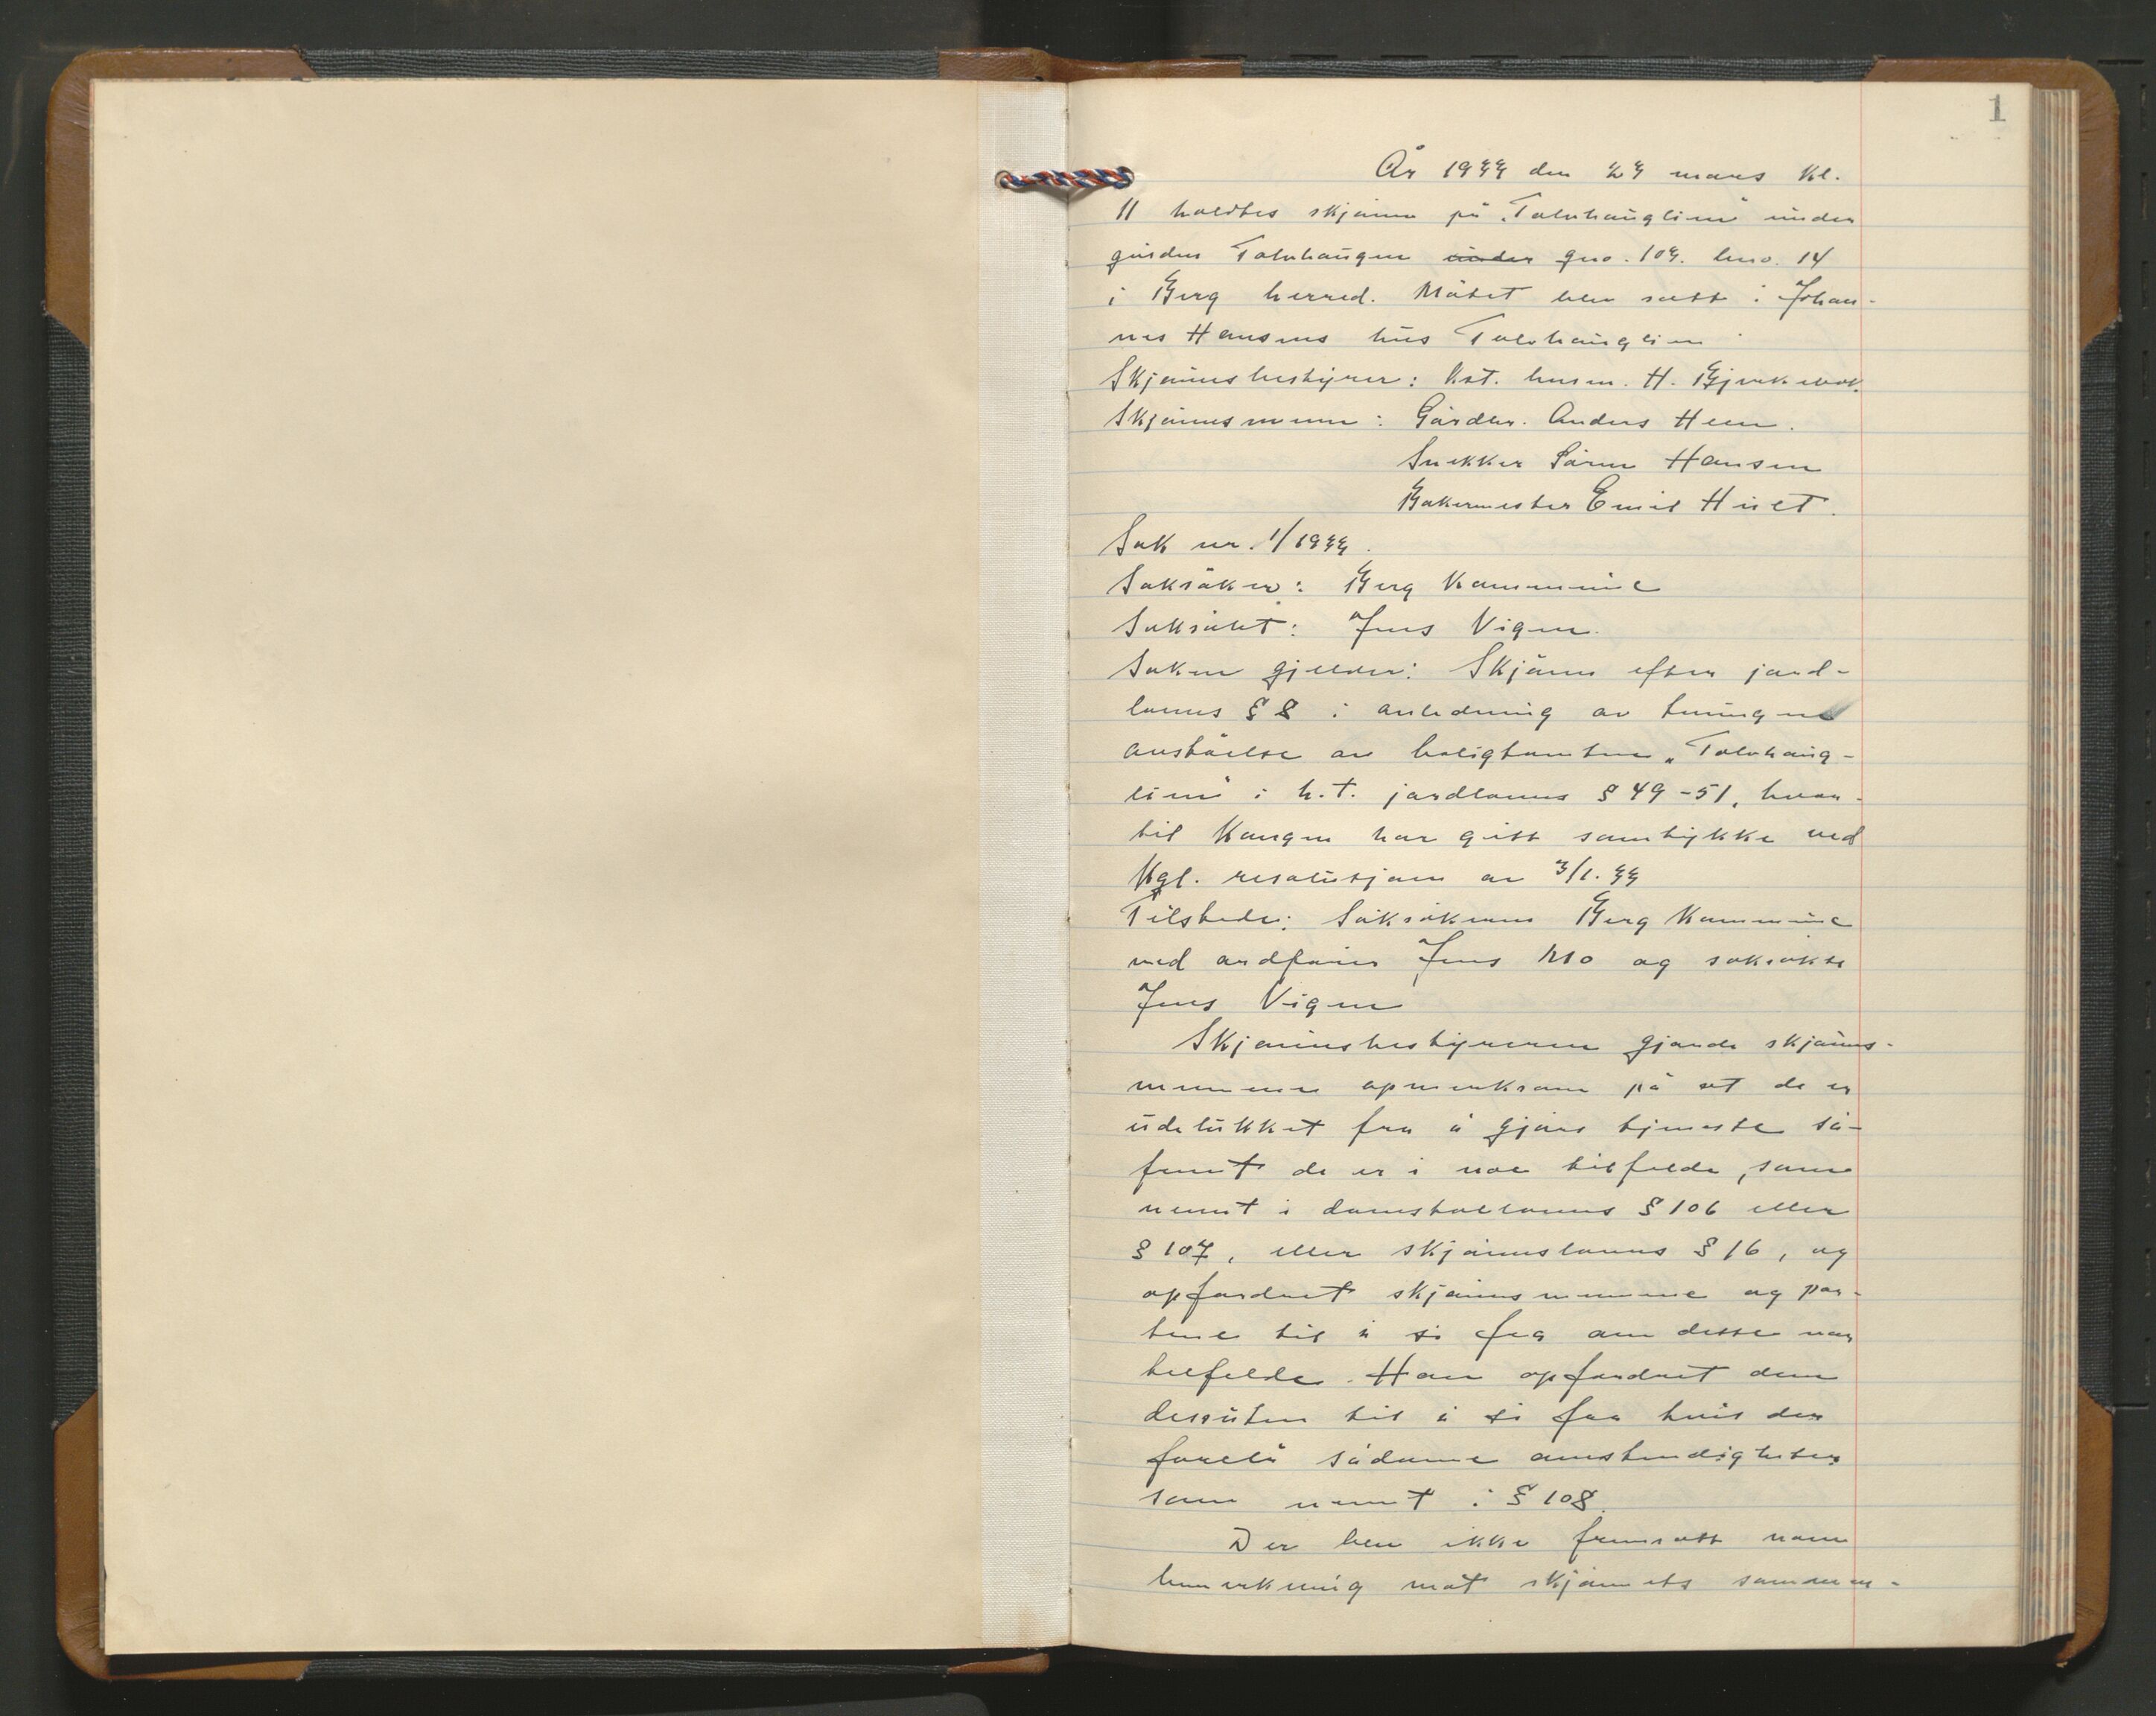 1
År 1944 den 24 mars kl.
11 holdtes skjønn på "Tolvhauglien" under
gården Tolvhaugen under gno. 104. bno. 14
i Berg herred. Møtet blev satt i Johan-
nes Hansens hus Tolvhauglien
Skjønnsbestyrer: Kst. lensm. H.
Skjønnsmenn: Gårdbr. Anders Heen.
Snekker Søren Hansen
Bakermester Emil Hult.
Sak nr. 1/1944.
Saksøker: Berg Kommune
Saksøkt: Jens Vigen.
Saken gjelder: Skjønn efter jord-
lovens § 8 i anledning av tvungen
avståelse av boligtomten "Tolvhaug-
lien" i h.t. jordlovens § 49-51, hvor-
til Kongen har gitt samtykke ved
Kgl. resolusjon av 3/1. 44
Tilstede: Saksøkeren Berg Kommune
ved ordfører Jens Mo og saksøkte
Jens Vigen
Skjønnsbestyreren gjorde skjønns-
mennene opmerksom på at de er
udelukket fra å gjøre tjeneste så-
fremt de er i noe tilfelde, som
nevnt i domstollovens § 106 eller
§ 107, eller skjønnslovens § 16, og
opfordret skjønnsmennene og par-
tene til å si fra om dette var
tilfelde. Han opfordret dem
dessuten til å si fra hvis der
forelå sådanne omstendigheter
som nevnt i § 108.
Der blev ikke fremsatt noen
bemerkning mot skjønnets sammen-